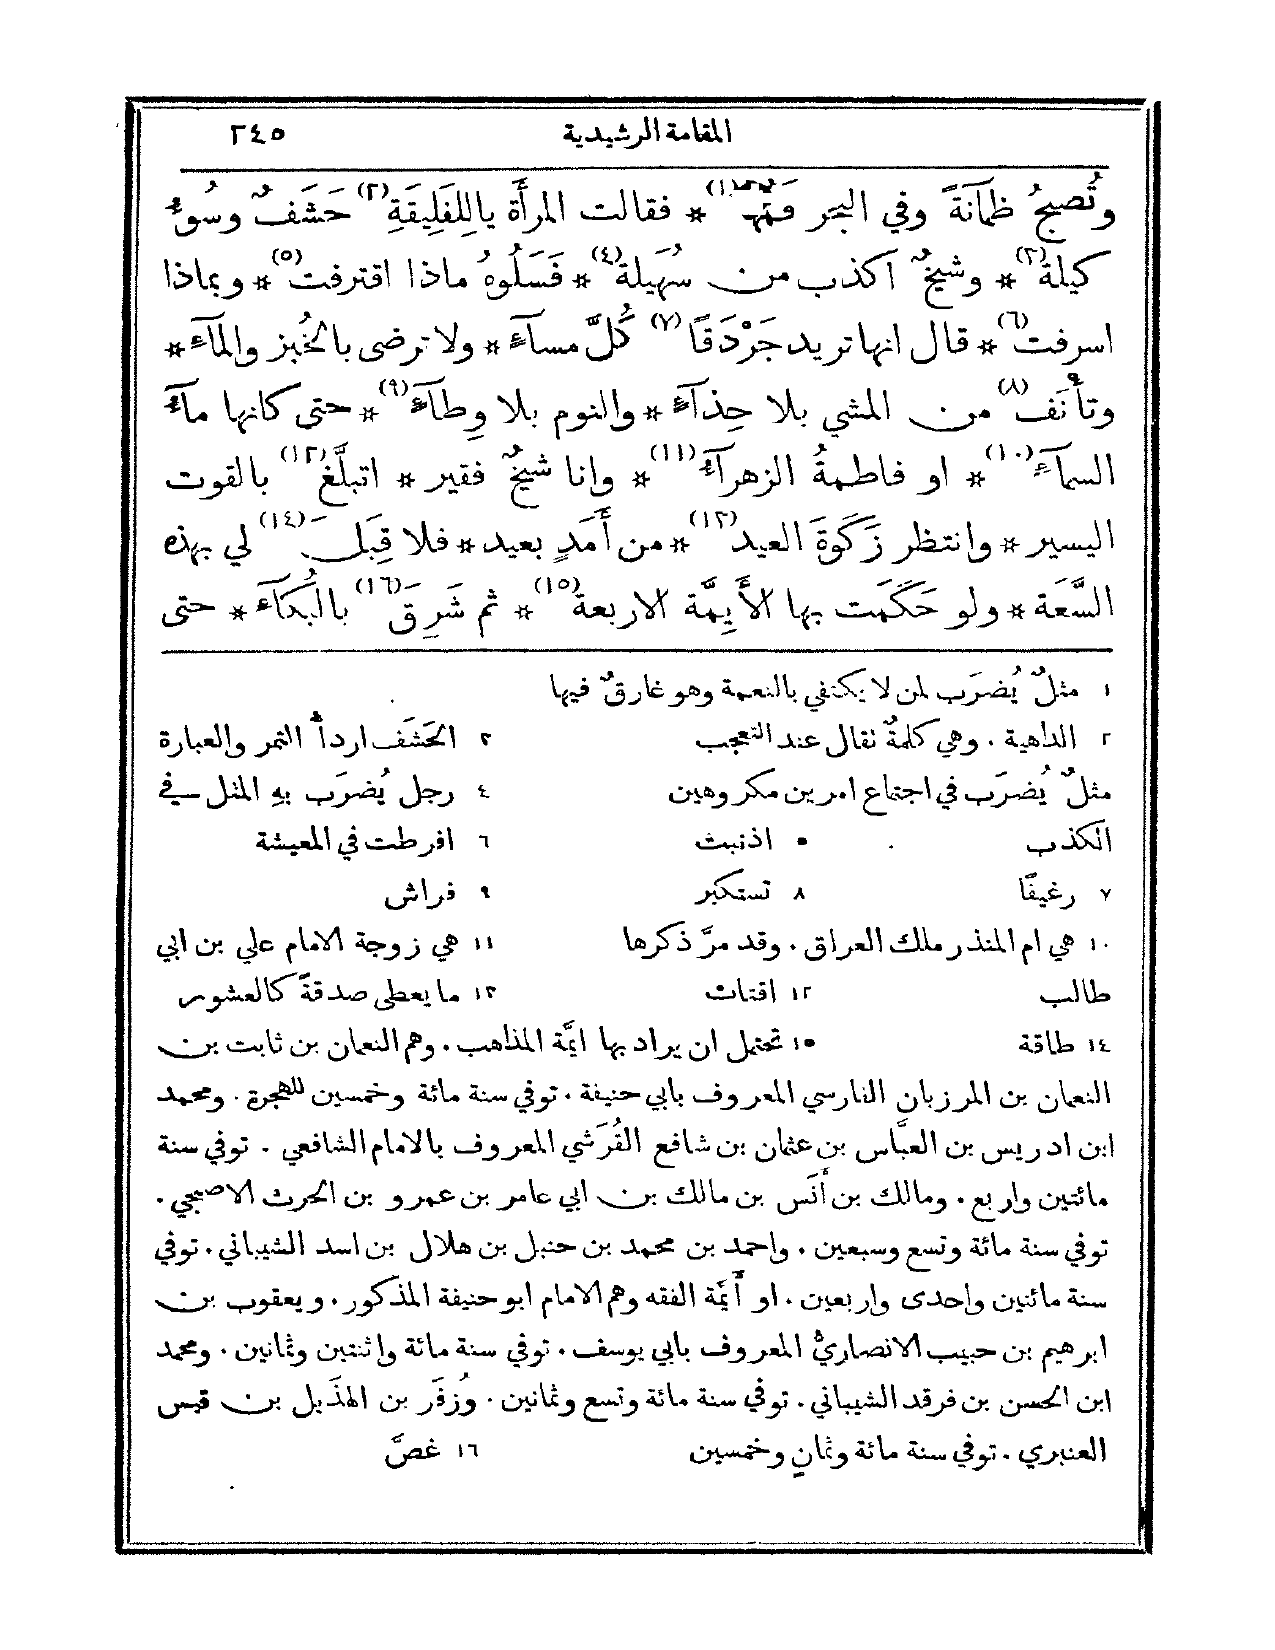 المقامة الرشيدية ٢٤٥
وتُصبحُ ظمآنةً وفي البحر فمها(١) * فقالت المرأَة ياللِفَلِيقَةِ(٢) حَشَفٌ وسُوءُ
كيلة(٣) * وشيخٌ اكذب من سُهَيلة(٤) * فَسَلُوهُ ماذا اقترفت(٥) * وبماذا
اسرفت(٦) * قال انها تريد جَرْدَقًا(٧) كُلَّ مساءٍ * ولا ترضى بالخُبز والماءِ *
وتأْنَف(٨) من المشي بلا حِذاءٍ * والنوم بلا وِطاءٍ(٩) * حتى كانها ماءُ
السماءِ(١٠) * او فاطمةُ الزهراءُ(١١) * وانا شيخٌ فقير * اتبلَّغ(١٢) بالقوت
اليسير * وانتظر زَكَوةَ العيد(١٣) * من أَمَدٍ بعيد * فلا قِبَل(١٤) لي بهذه
السَّعَة * ولو حَكَمَت بها الأَيِمَّة الاربعة(١٥) * ثم شَرِق(١٦) بالبُكاءِ * حتى
١ مثلٌ يُضرَب لمن لا يكتفي بالنعمة وهو غارقٌ فيها
٢ الداهية . وهي كلمةٌ تقال عند التعجب ٣ الحَشَف اردأُ التمر والعبارة
مثلٌ يُضرَب في اجتماع امرين مكروهين ٤ رجل يُضرَب بهِ المثل في
الكذب ٥ اذنبت ٦ افرطت في المعيشة
٧ رغيفًا ٨ تستكبر ٩ فراش
١٠ هي ام المنذر ملك العراق . وقد مرَّ ذكرها ١١ هي زوجة الامام علي بن ابي
طالب ١٢ اقتات ١٣ ما يعطى صدقةً كالعشور
١٤ طاقة ١٥ تحتمل ان يراد بها ايمَّة المذاهب . وهم النعمان بن ثابت بن
النعمان بن المرزبان الفارسي المعروف بابي حنيفة . توفي سنة مائة وخمسين للهجرة . ومحمد
ابن ادريس بن العبَّاس بن عثمان بن شافع القُرَشي المعروف بالامام الشافعي . توفي سنة
مائتين واربع . ومالك بن أَنَس بن مالك بن ابي عامر بن عمرو بن الحرث الاصبحي .
توفي سنة مائة وتسع وسبعين . واحمد بن محمد بن حنبل بن هلال بن اسد الشيباني . توفي
سنة مائتين واحدى واربعين . او أَيمَّة الفقه وهم الامام ابو حنيفة المذكور . ويعقوب بن
ابرهيم بن حبيب الانصاريُّ المعروف بابي يوسف . توفي سنة مائة واثنتين وثمانين . ومحمد
ابن الحسن بن فرقد الشيباني . توفي سنة مائة وتسع وثمانين . وزُفَر بن الهذَيل بن قيس
العنبري . توفي سنة مائة وثمانٍ وخمسين ١٦ غصَّ